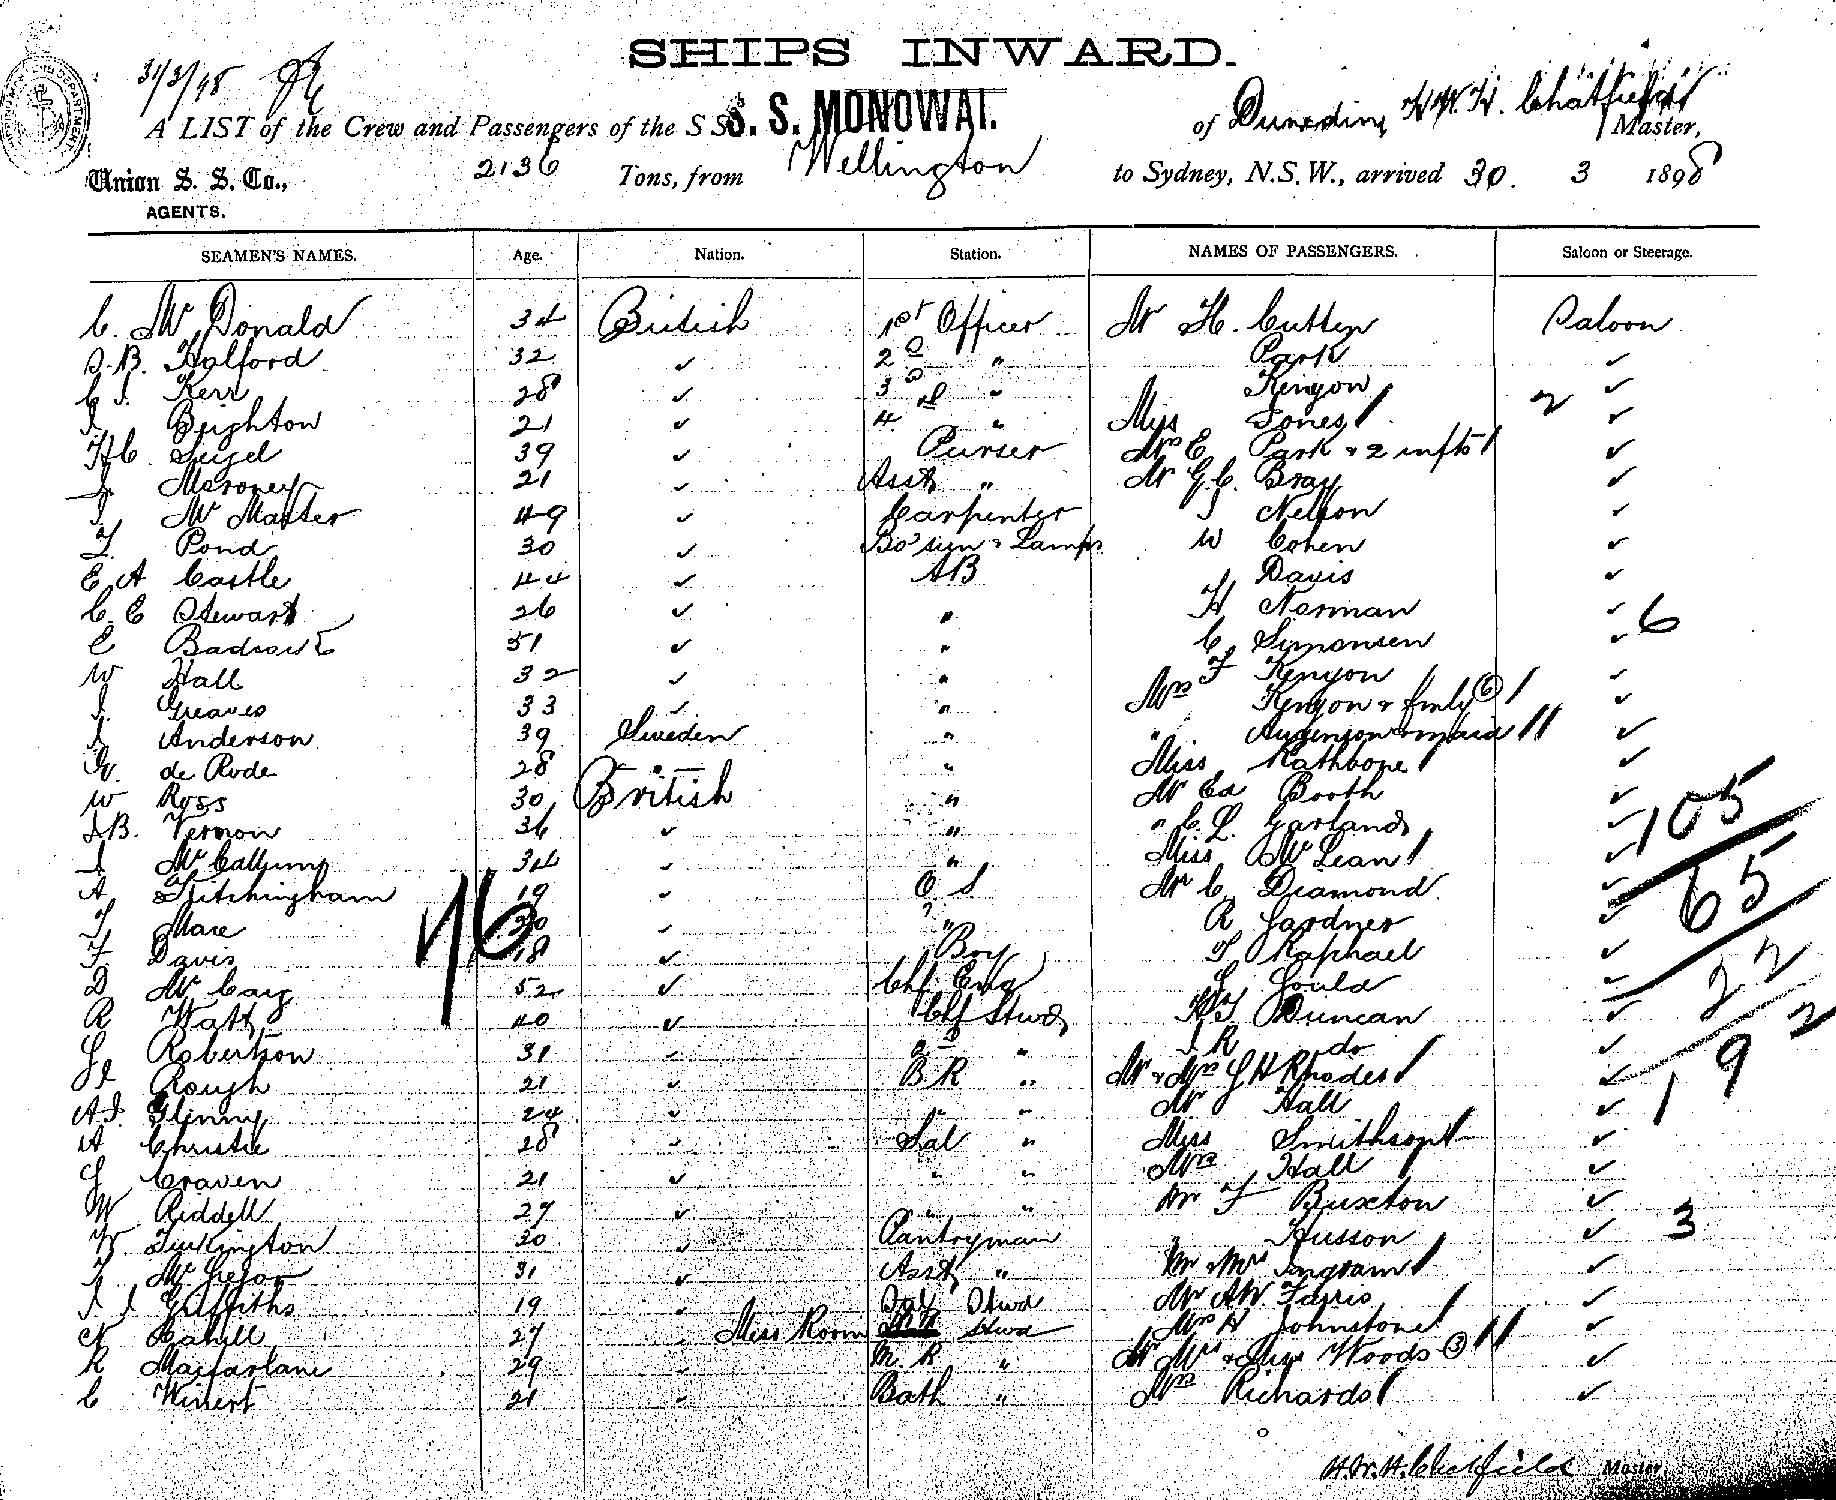 SHIPS INWARD.
31/3/98
A LIST of the Crew and Passengers of the S S. S. S. MONOWAI. of Dunedin, H. W. H. Chatfield Master,
Union S. S. Co., AGENTS. 2136 Tons, from Wellington to Sydney, N.S.W., arrived 30. 3 1898
SEAMEN'S NAMES. Age. Nation. Station. NAMES OF PASSENGERS. Saloon or Steerage.
C. McDonald 34 British 1st Officer Mr H. Cutten Saloon
J.B. Halford 32 ✓ 2d " Park ✓
C J. Kerr 28 ✓ 3d " Kenyon 2 ✓
J. Brighton 21 ✓ 4th " Miss Jones ✓
H C. Seigel 39 ✓ Purser Mrs E Park & 2 infts ✓
J. Maroney 21 ✓ Asst " Mr G.C. Bray ✓
J McMaster 49 ✓ Carpenter J Nelson ✓
T. Pond 30 ✓ Bo'sun & Lamps W Cohen ✓
E. A Castle 44 ✓ AB Davis ✓
C. E Stewart 26 ✓ " H Norman ✓ 6
E 51 ✓ " C. Simonsen ✓
W Hall 32 ✓ " F Kenyon ✓
J. Greaves 33 ✓ " Mrs Kenyon & fmly (6) ✓
J Anderson 39 Sweden " " & maid ✓
de Rode 28 " " Miss Rathbone ✓
W Ross 30 British " Mr Ed Booth ✓
J.B. Vernon 36 ✓ " " C. L. Garland ✓ 105
J McCallum 34 ✓ " Miss McLean ✓
A Titchingham 19 ✓ O S Mr C. Diamond ✓ 65
T. Mare 30 ✓ " R Gardner ✓
F Davis 18 ✓ Boy T Raphael ✓
D McCaig 52 ✓ Chf Eng Gould ✓ 22
R Watt 40 ✓ Chf Stwd Duncan ✓ 2
G Robertson 31 ✓ 2d " J R do ✓
Rough 21 ✓ B R " Mr & Mrs G H Rhodes ✓ 19
A.J. Glinny 24 ✓ " " Mr Hall ✓
A Christie 28 ✓ Sal " Miss Smithson ✓
G Craven 21 ✓ " " Mrs Hall ✓
W Riddell 27 ✓ " " Mr F Buxton ✓
W. Turkington 30 ✓ Pantryman Husson ✓ 3
J McGregor 31 ✓ Asst " Mr & Mrs Ingram ✓
J J Griffiths 19 ✓ Stwd Mr AW. Farris ✓
Cahill 27 ✓ Mess Room Stwd Mrs H Johnstone ✓
R Macfarlane 29 ✓ M. R " Mr Mrs & Miss Woods (3) ✓
C Winert 21 ✓ Bath " Mrs Richards ✓
H. W. H. Chatfield Master